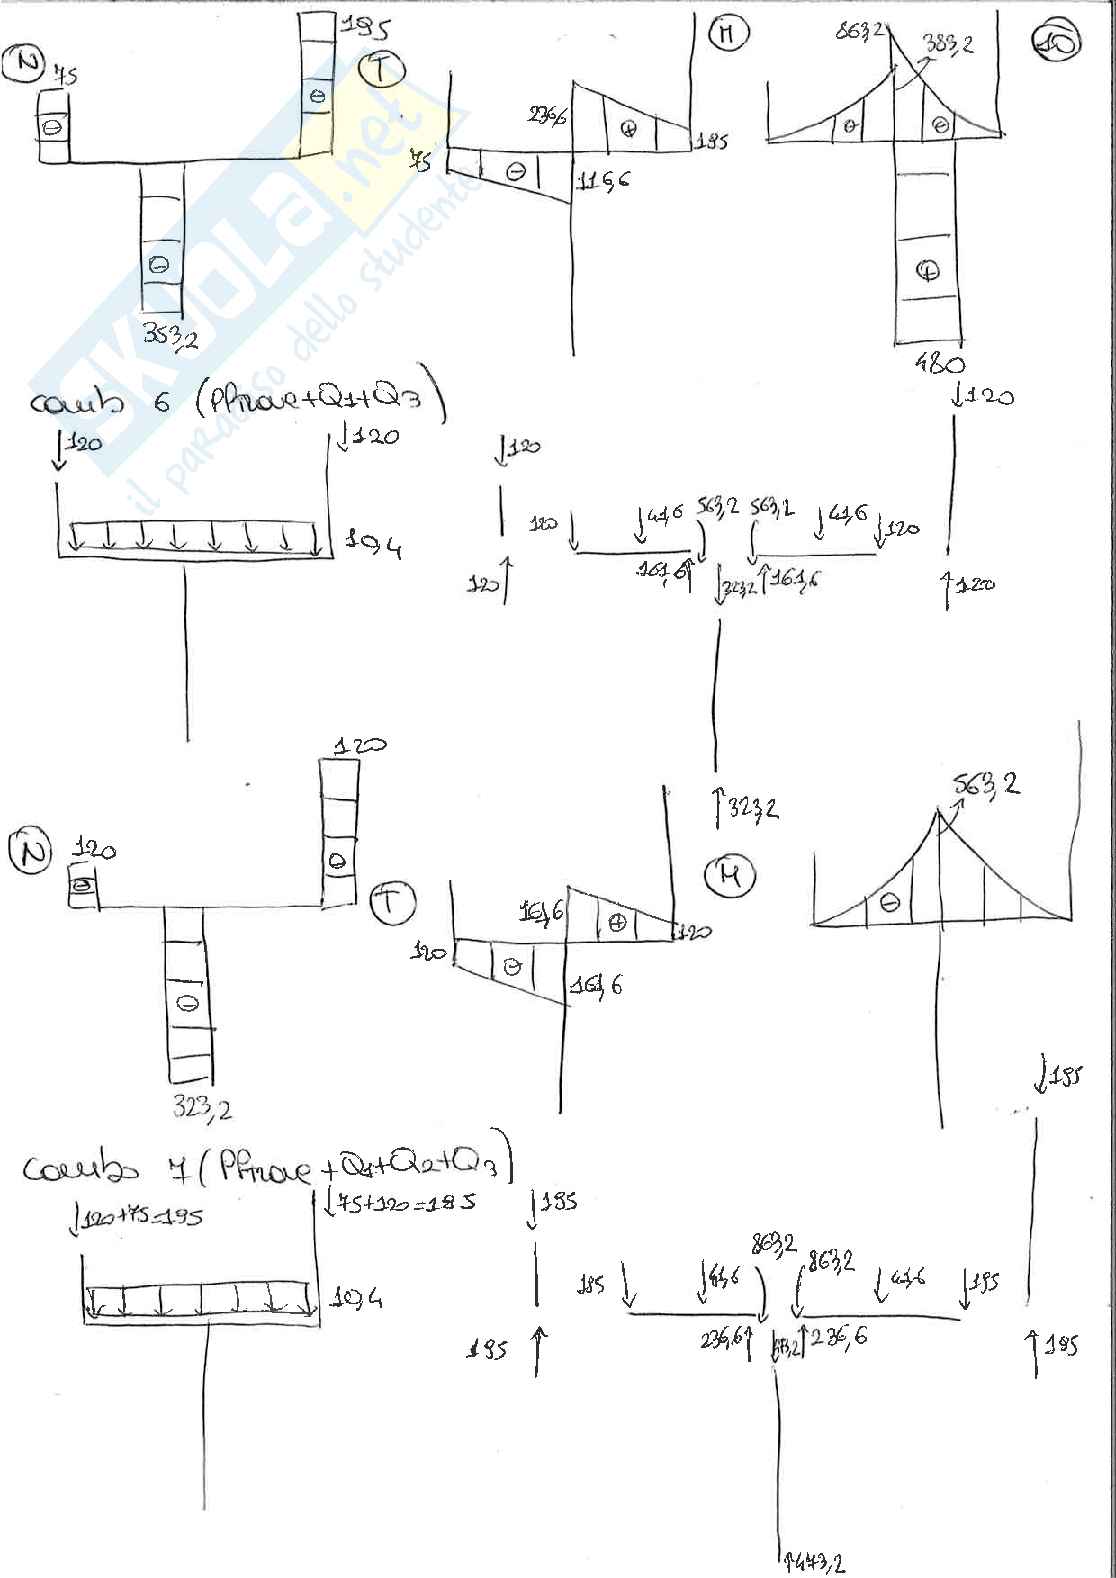 N
75
195
T
236,6
75
195
116,6
M
863,2
383,2
10
353,2
480
SKUOLA.net
il paradiso dello studente
comb 6 (PPtrave+Q1+Q3)
120
120
10,4
120
120
120
41,6
563,2
563,2
41,6
120
161,6
323,2
161,6
120
120
323,2
N
120
120
323,2
T
161,6
120
120
161,6
M
563,2
comb 7 (PPtrave+Q1+Q2+Q3)
120+75=195
75+120=195
10,4
195
195
195
41,6
863,2
863,2
41,6
195
236,6
473,2
236,6
195
195
473,2